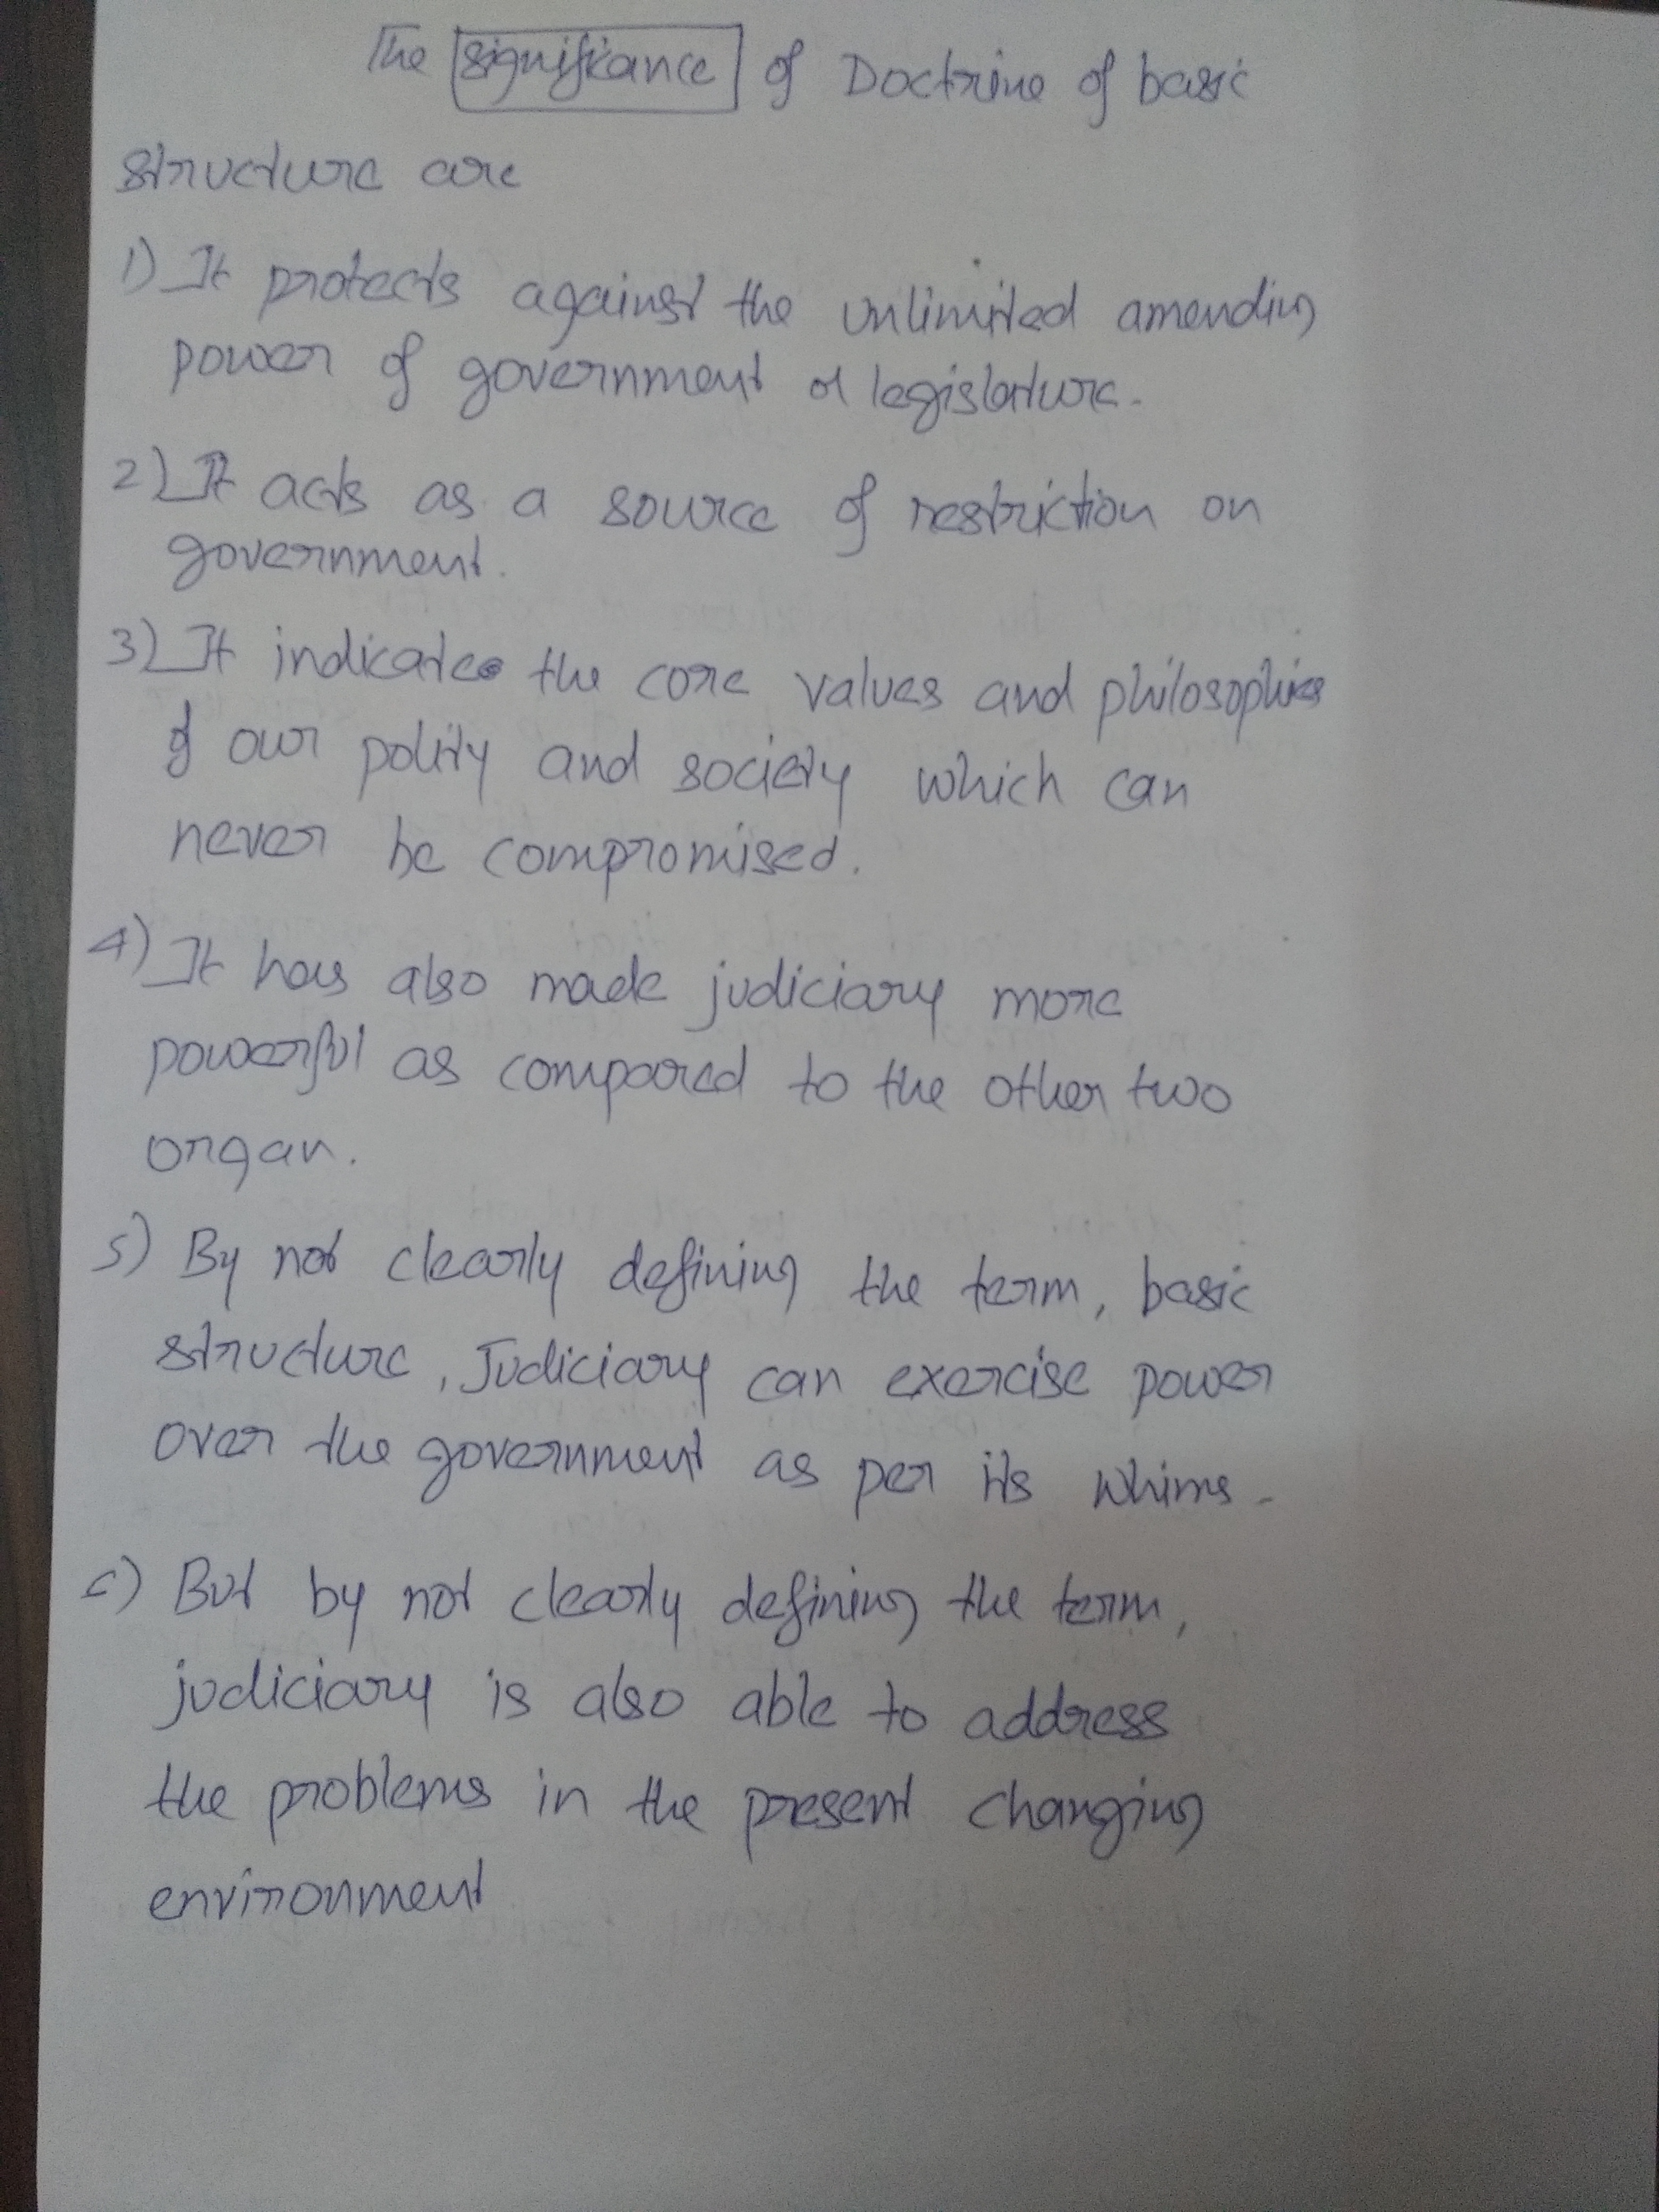 The significance of Doctrine of basic
structure are
1) It protects against the unlimited amending
power of government or legislature.
2) It acts as a source of restriction on
government.
3) It indicates the core values and philosophies
of our polity and society which can
never be compromised.
4) It has also made judiciary more
powerful as compared to the other two
organ.
5) By not clearly defining the term, basic
structure, Judiciary can exercise power
over the government as per its whims.
6) But by not clearly defining the term,
judiciary is also able to address
the problems in the present changing
environment